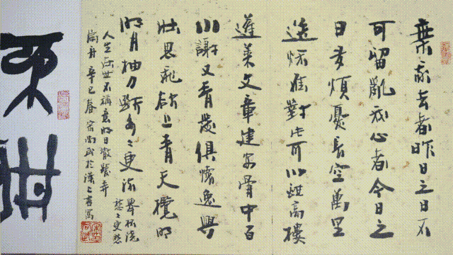 棄我去者昨日之日不
可留亂我心者今日之
日多煩憂長空萬里
送秋雁對此可以酣高樓
蓬萊文章建安骨中間
小謝又清發俱懷逸興
壯思飛欲上青天攬明
明月抽刀斷水水更流舉杯消
愁愁更愁
人生在世不稱意明日散髮弄
扁舟 辛巳春